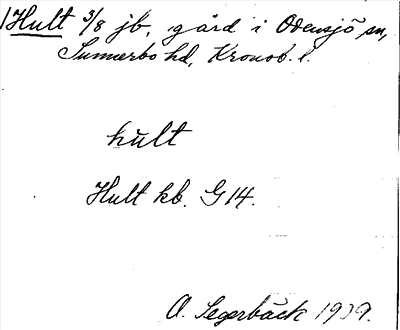 Hult 3/8 jb, gård i Odensjö sn,
Sunnerbo hd, Kronob. l.
hult
Hult kb. G 14.
O. Segerbäck 1939.